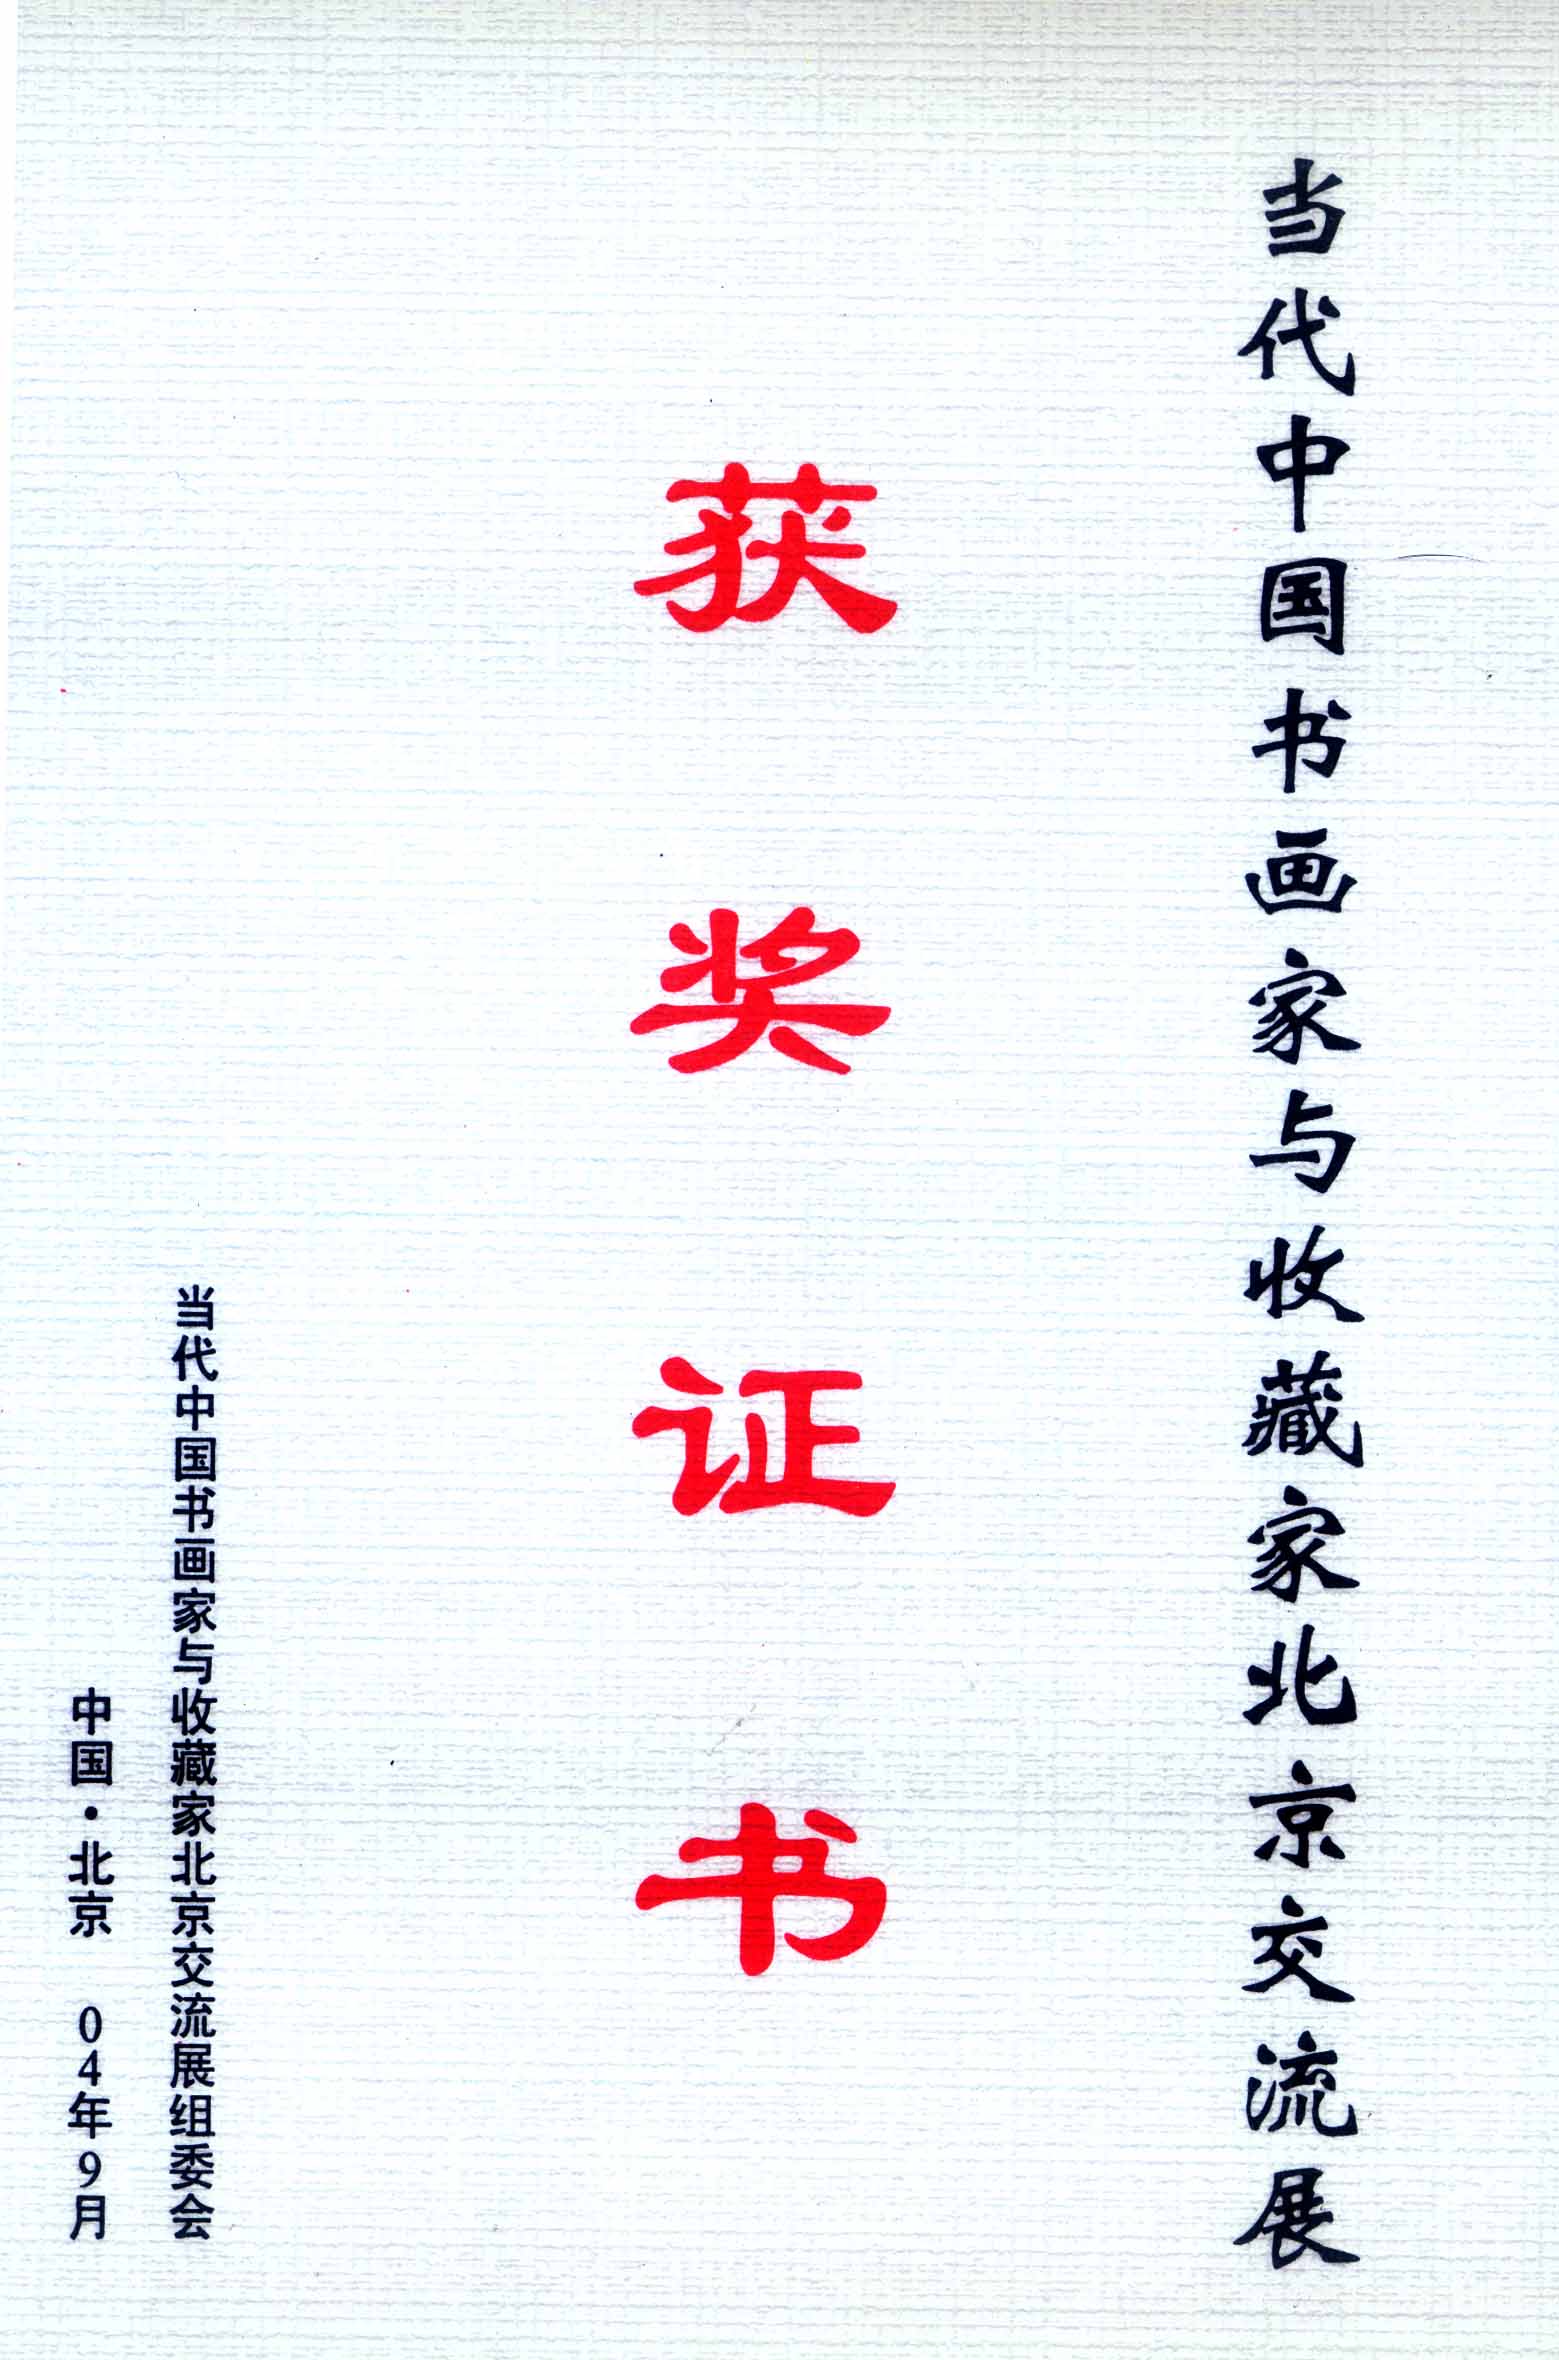 当代中国书画家与收藏家北京交流展
获奖证书
当代中国书画家与收藏家北京交流展组委会
中国·北京 04年9月